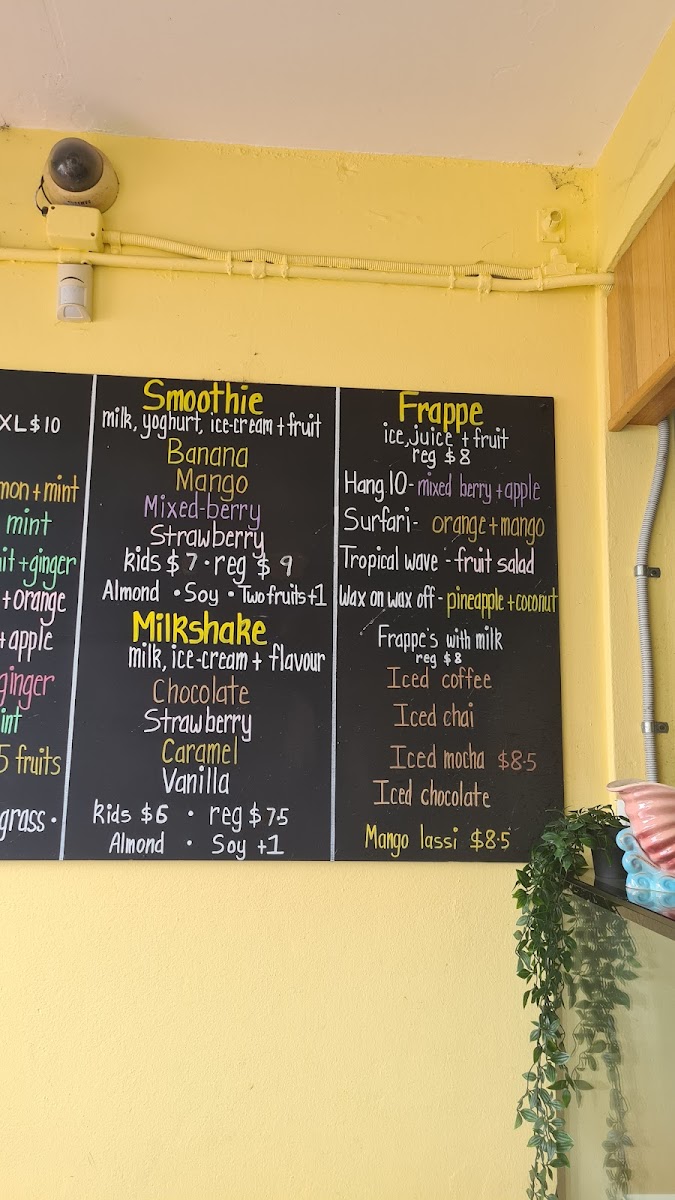 XL $10
mon + mint
mint
it + ginger
+ orange
+ apple
ginger
int
5 fruits
grass •
Smoothie
milk, yoghurt, ice-cream + fruit
Banana
Mango
Mixed-berry
Strawberry
kids $7 • reg $9
Almond • Soy • Two fruits +1
Milkshake
milk, ice-cream + flavour
Chocolate
Strawberry
Caramel
Vanilla
kids $6 • reg $7.5
Almond • Soy +1
Frappe
ice, juice + fruit
reg $8
Hang 10 - mixed berry + apple
Surfari - orange + mango
Tropical wave - fruit salad
Wax on wax off - pineapple + coconut
Frappe's with milk
reg $8
Iced coffee
Iced chai
Iced mocha $8.5
Iced chocolate
Mango lassi $8.5